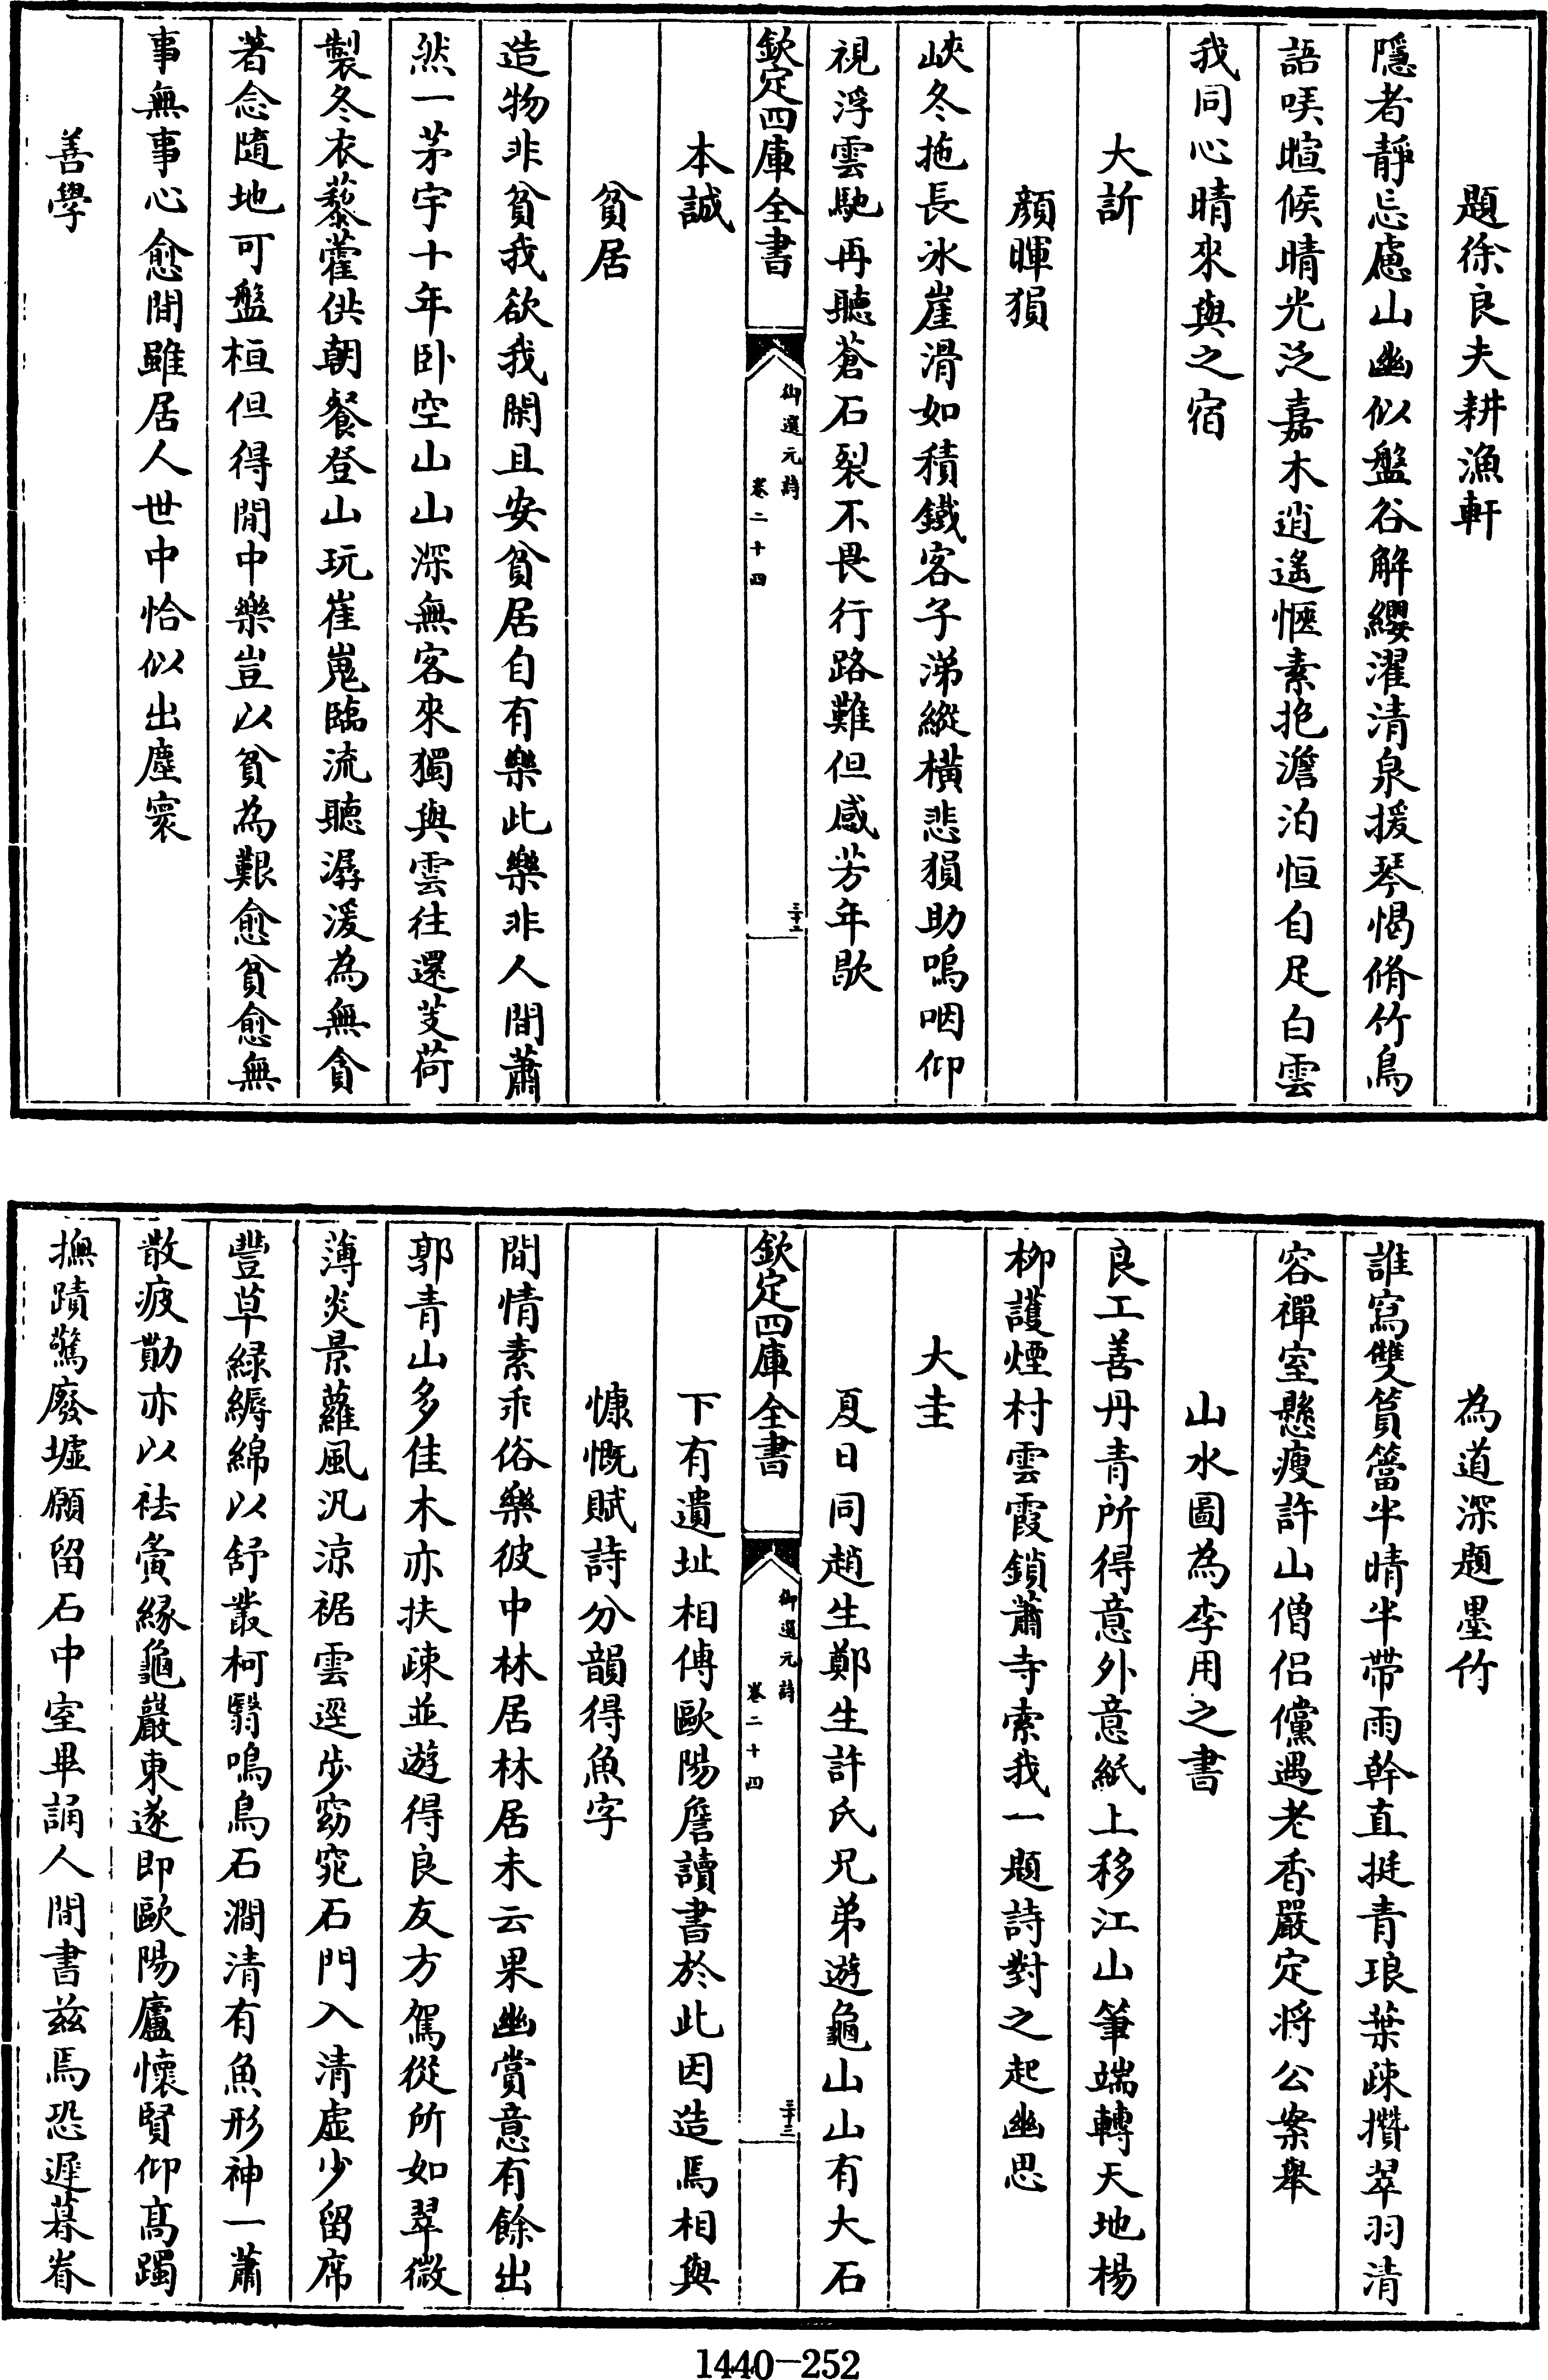 題徐良夫耕漁軒
隱者靜忘慮山幽似盤谷解纓濯清泉援琴愒脩竹鳥
語喚暄候晴光泛嘉木逍遙愜素抱澹泊恒自足白雲
我同心晴來與之宿
大訢
顔暉猿
峽冬拖長冰崖滑如積鐵客子涕縱橫悲猿助嗚咽仰
視浮雲馳再聽蒼石裂不畏行路難但感芳年歇
欽定四庫全書
御選元詩
卷二十四
三十二
本誠
貧居
造物非貧我欲我閑且安貧居自有樂此樂非人間蕭
然一茅宇十年卧空山山深無客來獨與雲往還芰荷
製冬衣藜藿供朝餐登山玩崔嵬臨流聽潺湲為無貪
著念隨地可盤桓但得閒中樂豈以貧為艱愈貧愈無
事無事心愈間雖居人世中恰似出塵寰
善學
為道深題墨竹
誰寫雙篔簹半晴半帶雨幹直挺青琅葉疎攢翠羽清
容禪室懸瘦許山僧侣儻遇老香嚴定将公案舉
山水圖為李用之書
良工善丹青所得意外意紙上移江山筆端轉天地楊
柳護煙村雲霞鎖蕭寺索我一題詩對之起幽思
大圭
夏日同趙生鄭生許氏兄弟遊龜山山有大石
欽定四庫全書
御選元詩
卷二十四
三十三
下有遺址相傳歐陽詹讀書於此因造焉相與
慷慨賦詩分韻得魚字
間情素乖俗樂彼中林居林居未云果幽賞意有餘出
郭青山多佳木亦扶疎並遊得良友方駕從所如翠微
薄炎景蘿風汎涼裾雲逕步窈窕石門入清虛少留席
豐草緑縟綿以舒叢柯翳鳴鳥石澗清有魚形神一蕭
散疲勩亦以祛夤緣龜巖東遂即歐陽廬懷賢仰高躅
撫蹟驚廢墟願留石中室畢誦人間書兹焉恐遲暮眷
1440-252